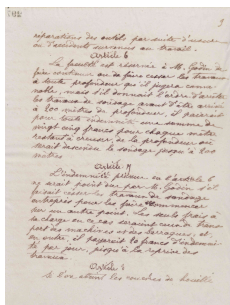 3
réparations des outils par suite d'usure
ou d'accidents survenus au travail.
Article 6
La faculté est réservée à M. Godin de
faire continuer ou de faire cesser les travaux
à toute profondeur qui il jugera conve-
nable, mais s'il donnait l'ordre d'arrêter
les travaux de sondage avant d'être arrivé
à 200 mètres de profondeur, il paierait
pour toute indemnité une somme de
vingt cinq francs pour chaque mètre
restant à creuser, de la profondeur où
serait descendu le sondage jusqu'à 200
mètres
Article 7
L'indemnité prévue en l'article 6
ne serait point due par M. Godin s'il
faisait cesser les travaux de sondage
entrepris pour les faire recommencer
sur un autre point. Les seuls frais à
sa charge en ce cas seraient ceux de trans-
port des machines et des barraques, et
en outre, il payerait 20 francs d'indemni-
té par jour, jusqu'à la reprise des
travaux.
Article 8
Si l'on atteint les couches de houille